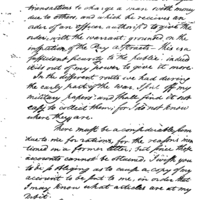 transactions to charge a man with money
due to others, and which he receives an
order of an officer, authority to give the
order, with the warrant, grounded on the
of the Pay a. This is a
sufficient to the public: indeed
but out of my power to give it more.
In the different routs we had during
the early part of the war, I lost off my
military papers; and I have found it not
easy to collect them; for I do not know
where they are.
There must be a considerable sum
due to me for rations, for the reasons men
tioned in a former letter, but for these
accounts cannot be obtained. I wish you
to be obliging as to cause a copy of my
account to be sent to me, in order that
I may know what articles are at my
debit.